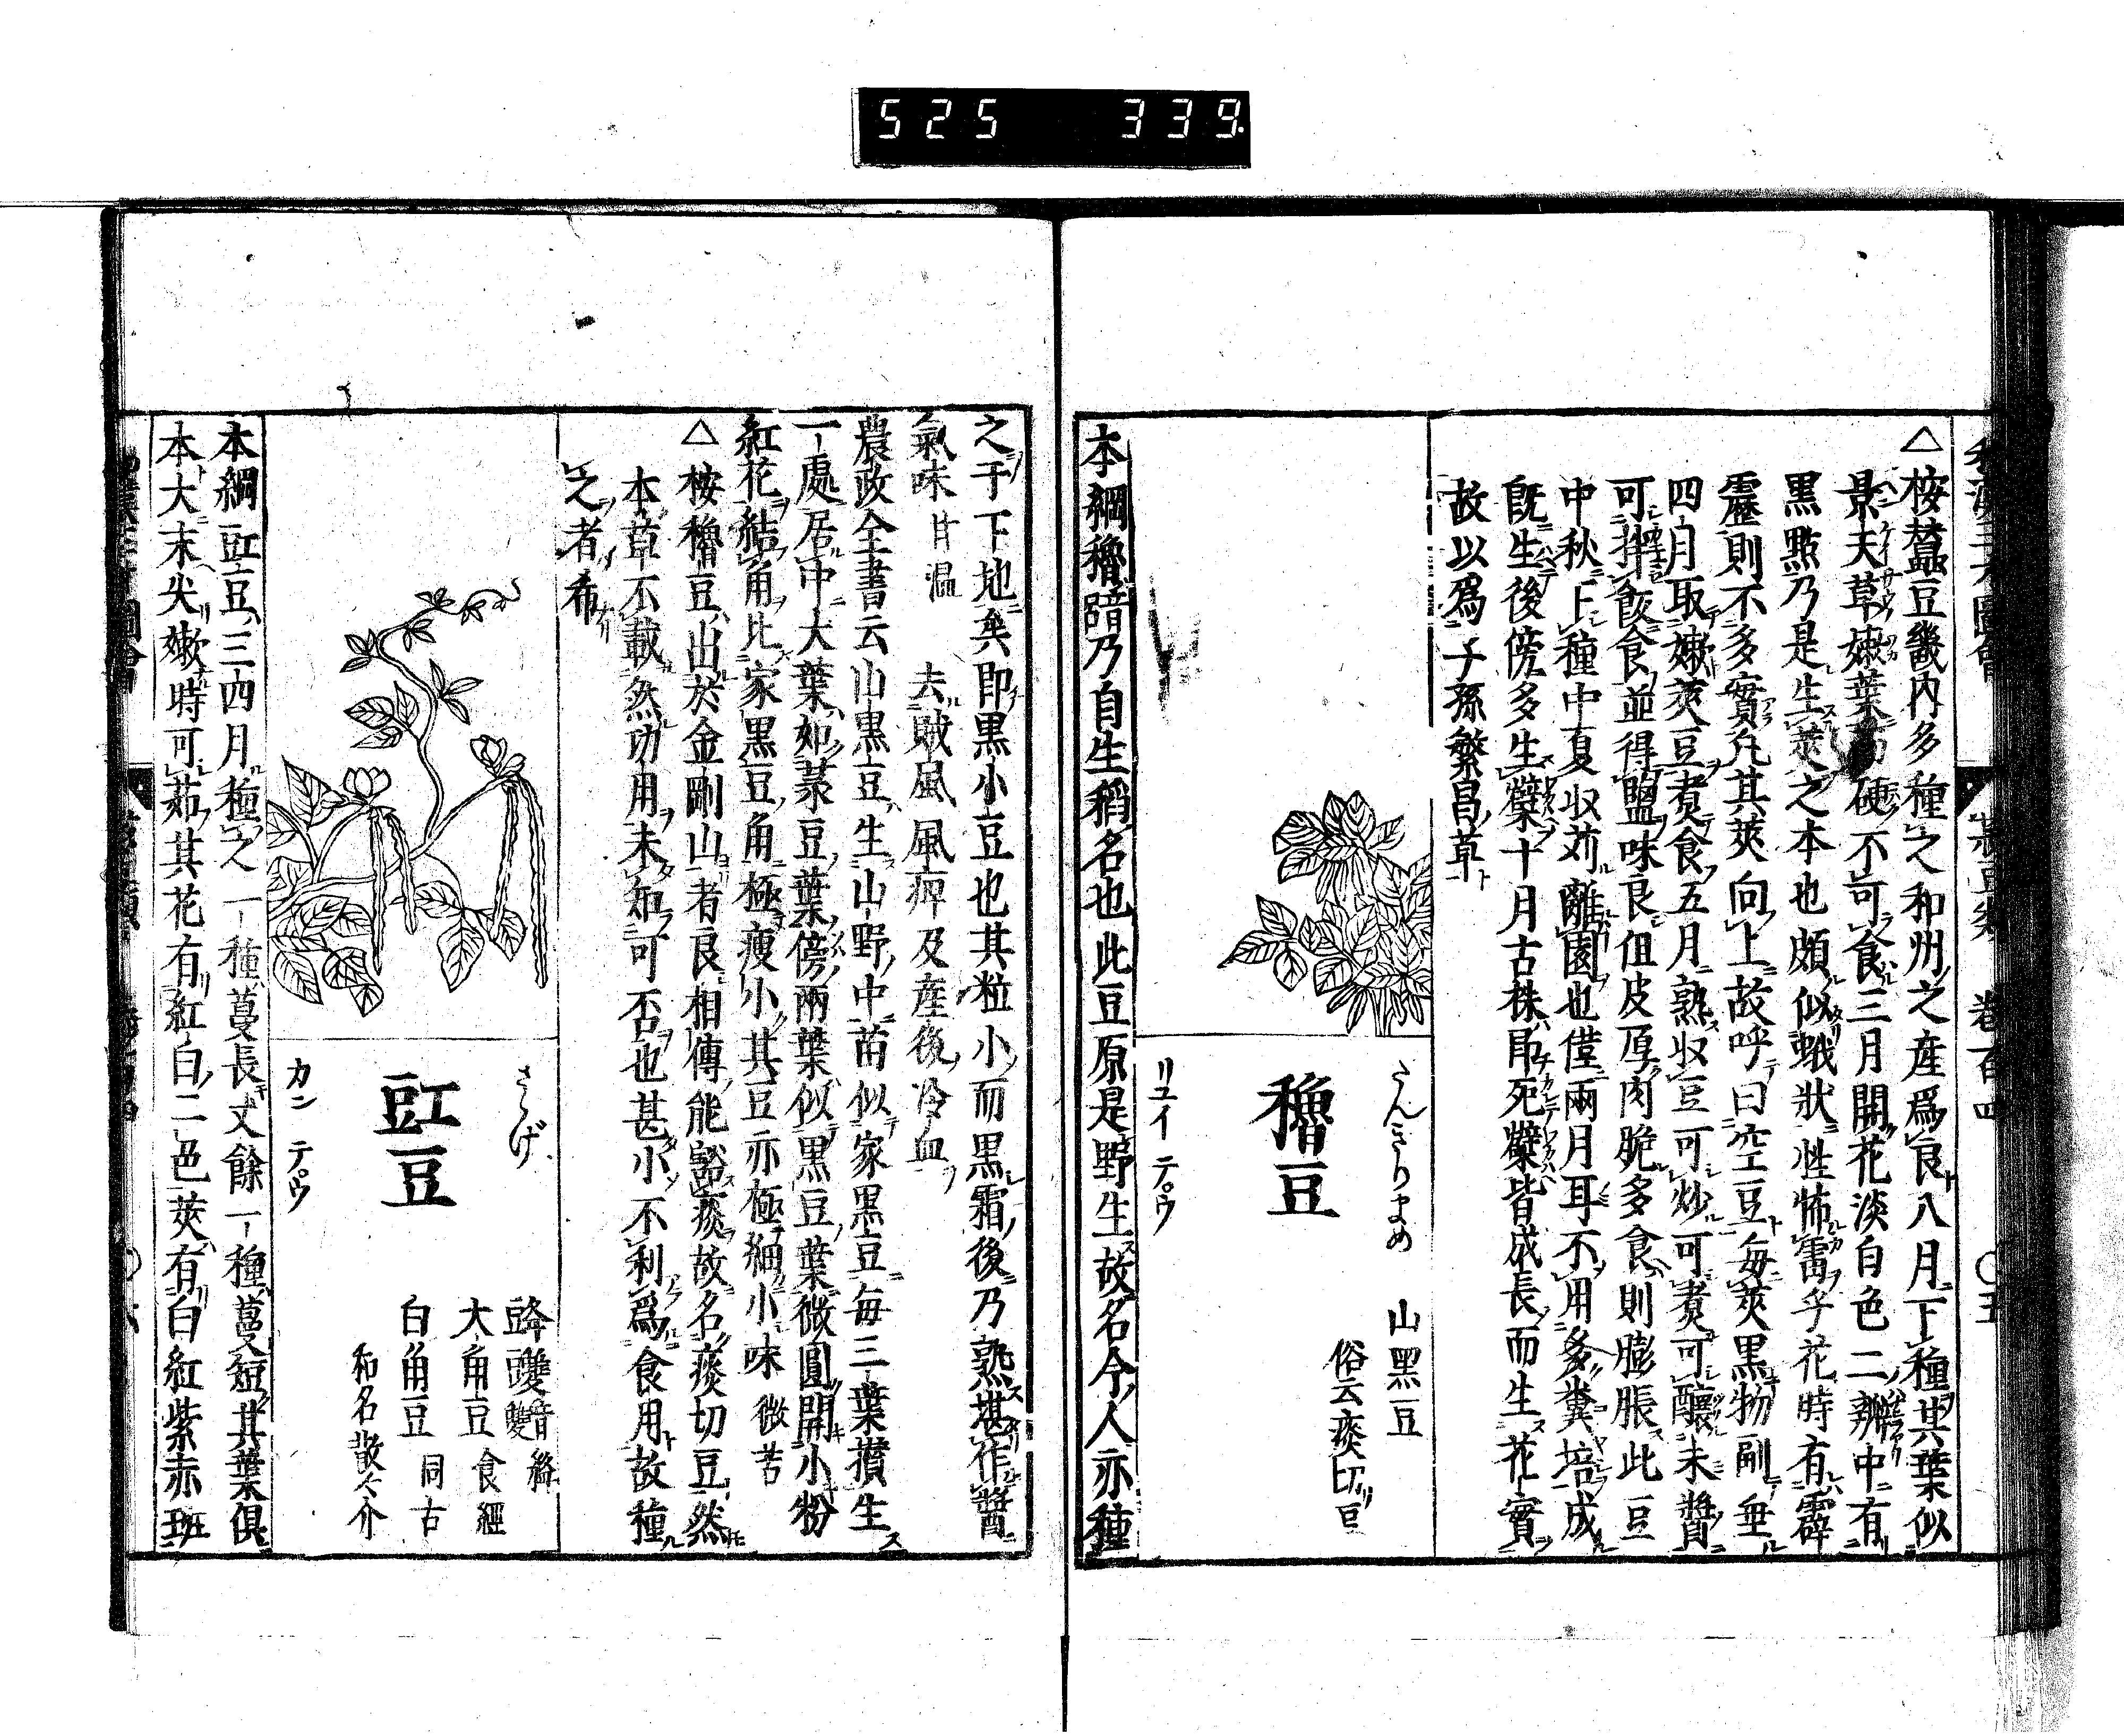 525 339
△桉蠶豆畿内多種之和州之産爲良八月下種其葉似
景天草嫩葉而硬不可食三月開花淡白色二瓣中有
黒點乃是生莢之本也頗似蛾狀性怖雷孚花時有霹
靂則不多實凡其莢向上故呼曰空豆毎莢黒物副垂
四月取嫩莢豆煑食五月熟収豆可炒可煑可釀未醬
可拌飯食並得鹽味良但皮厚肉脆多食則膨脹此豆
中秋上種中夏収苅離園也僅兩月耳不用多糞培成
既生後傍多生蘖十月古株甪死蘖皆成長而生花實
故以爲子孫繁昌草
さんきりまめ
穭豆
リユイ テ゚ウ
山黒豆
俗云痰切豆
本綱穭豆乃自生稻名也此豆原是野生故名今人亦種
之于下地矣即黒小豆也其粒小而黒霜後乃熟堪作醬
氣味 甘温 去賊風風痺及産後冷血
農政全書云山黒豆生山野中苗似家黒豆毎三葉攅生
一處居中大葉如菉豆葉傍兩葉似黒豆葉微圓開小粉
紅花結角比家黒豆角極瘦小其豆亦極細小味微苦
△桉穭豆出於金剛山者良相傳能豁痰故名痰切豆然
本草不載然功用未知可否也甚小不利爲食用故種
之者希
さゝげ
豇豆
カン テ゚ウ
𧯆𧰿音絳雙
大角豆 食經
白角豆 同古
和名散〻介
本綱豇豆三四月種之一種蔓長丈餘一種蔓短其葉俱
本大末尖嫩時可茹其花有紅白二色莢有白紅紫赤斑